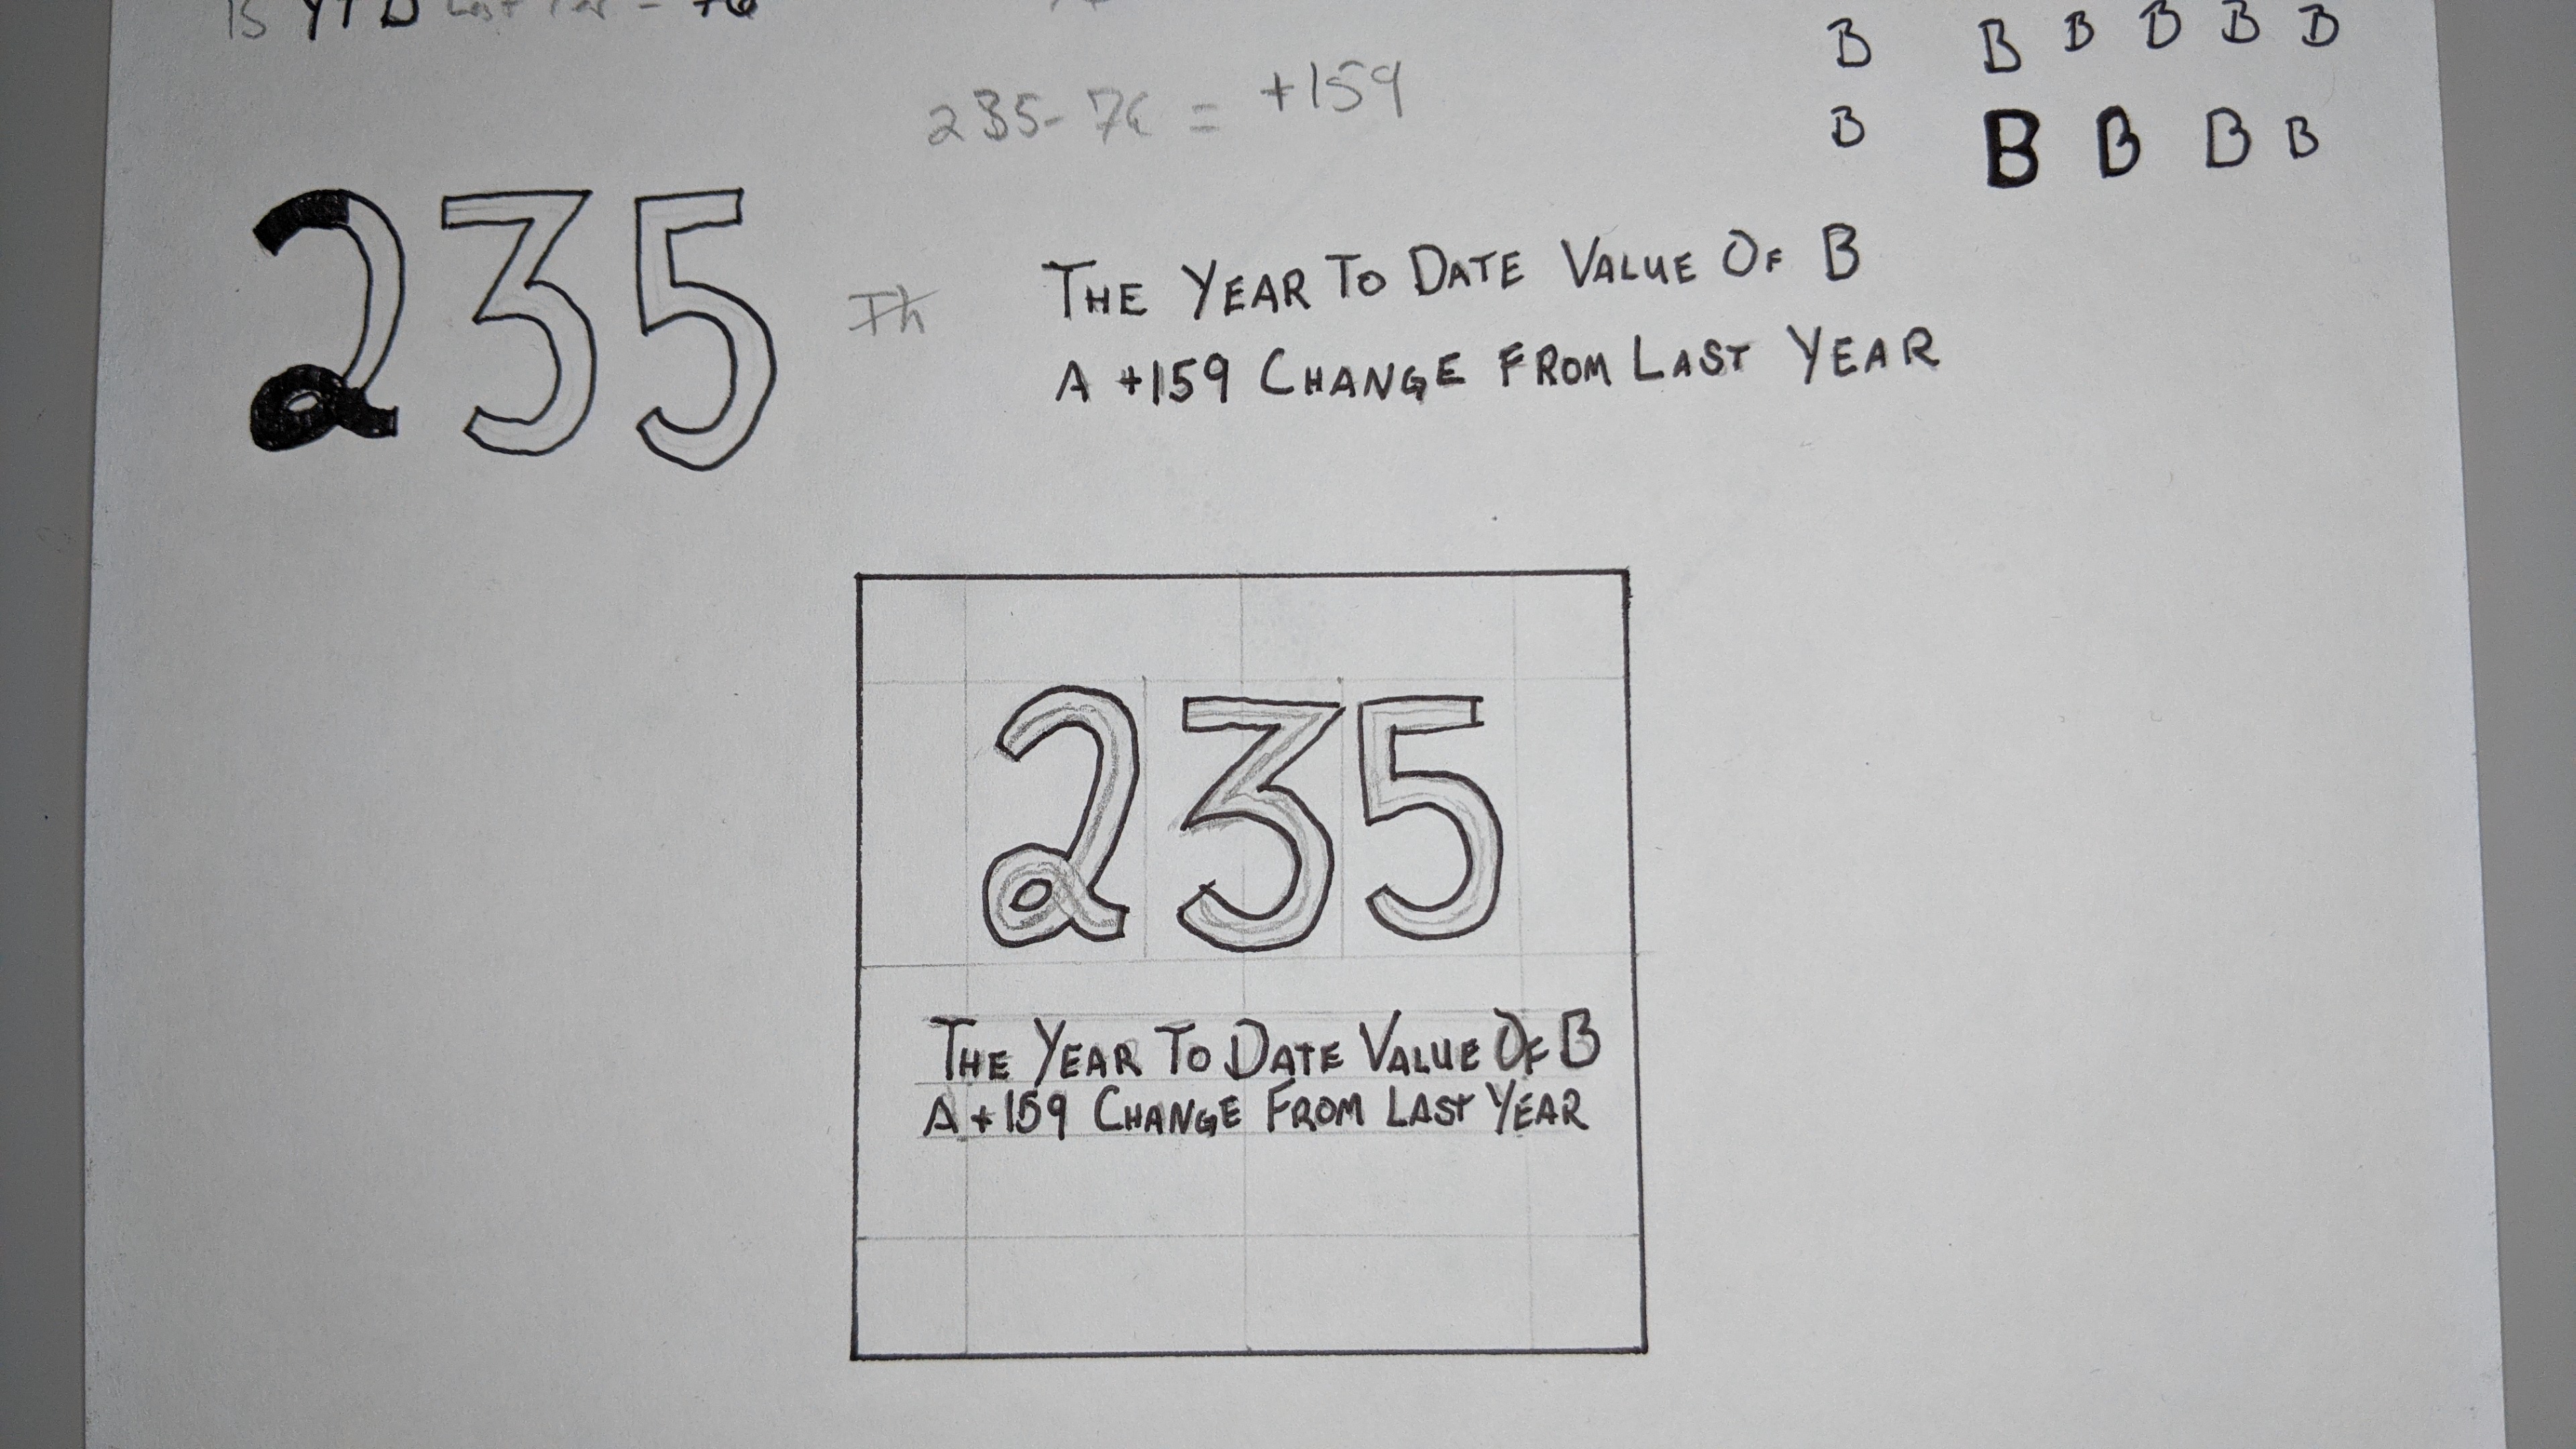 15 YTD Last Year = 76
B B B B B B
235 - 76 = +159
B B B B B
235 Th THE YEAR TO DATE VALUE OF B
A +159 CHANGE FROM LAST YEAR
235
THE YEAR TO DATE VALUE OF B
A +159 CHANGE FROM LAST YEAR